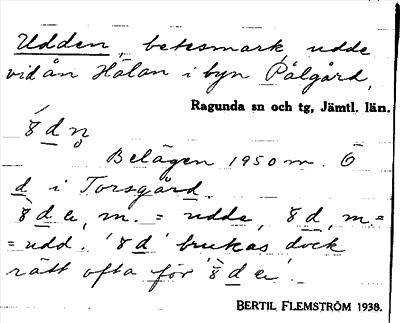 Udden, betesmark, udde
vid ån Hälan i byn Pålgård,
Ragunda sn och tg, Jämtl. län.
Belägen 1950 m. Ö
d i Torsgård.
m. = udde, m. =
= udd. brukas dock
rätt ofta för
BERTIL FLEMSTRÖM 1938.